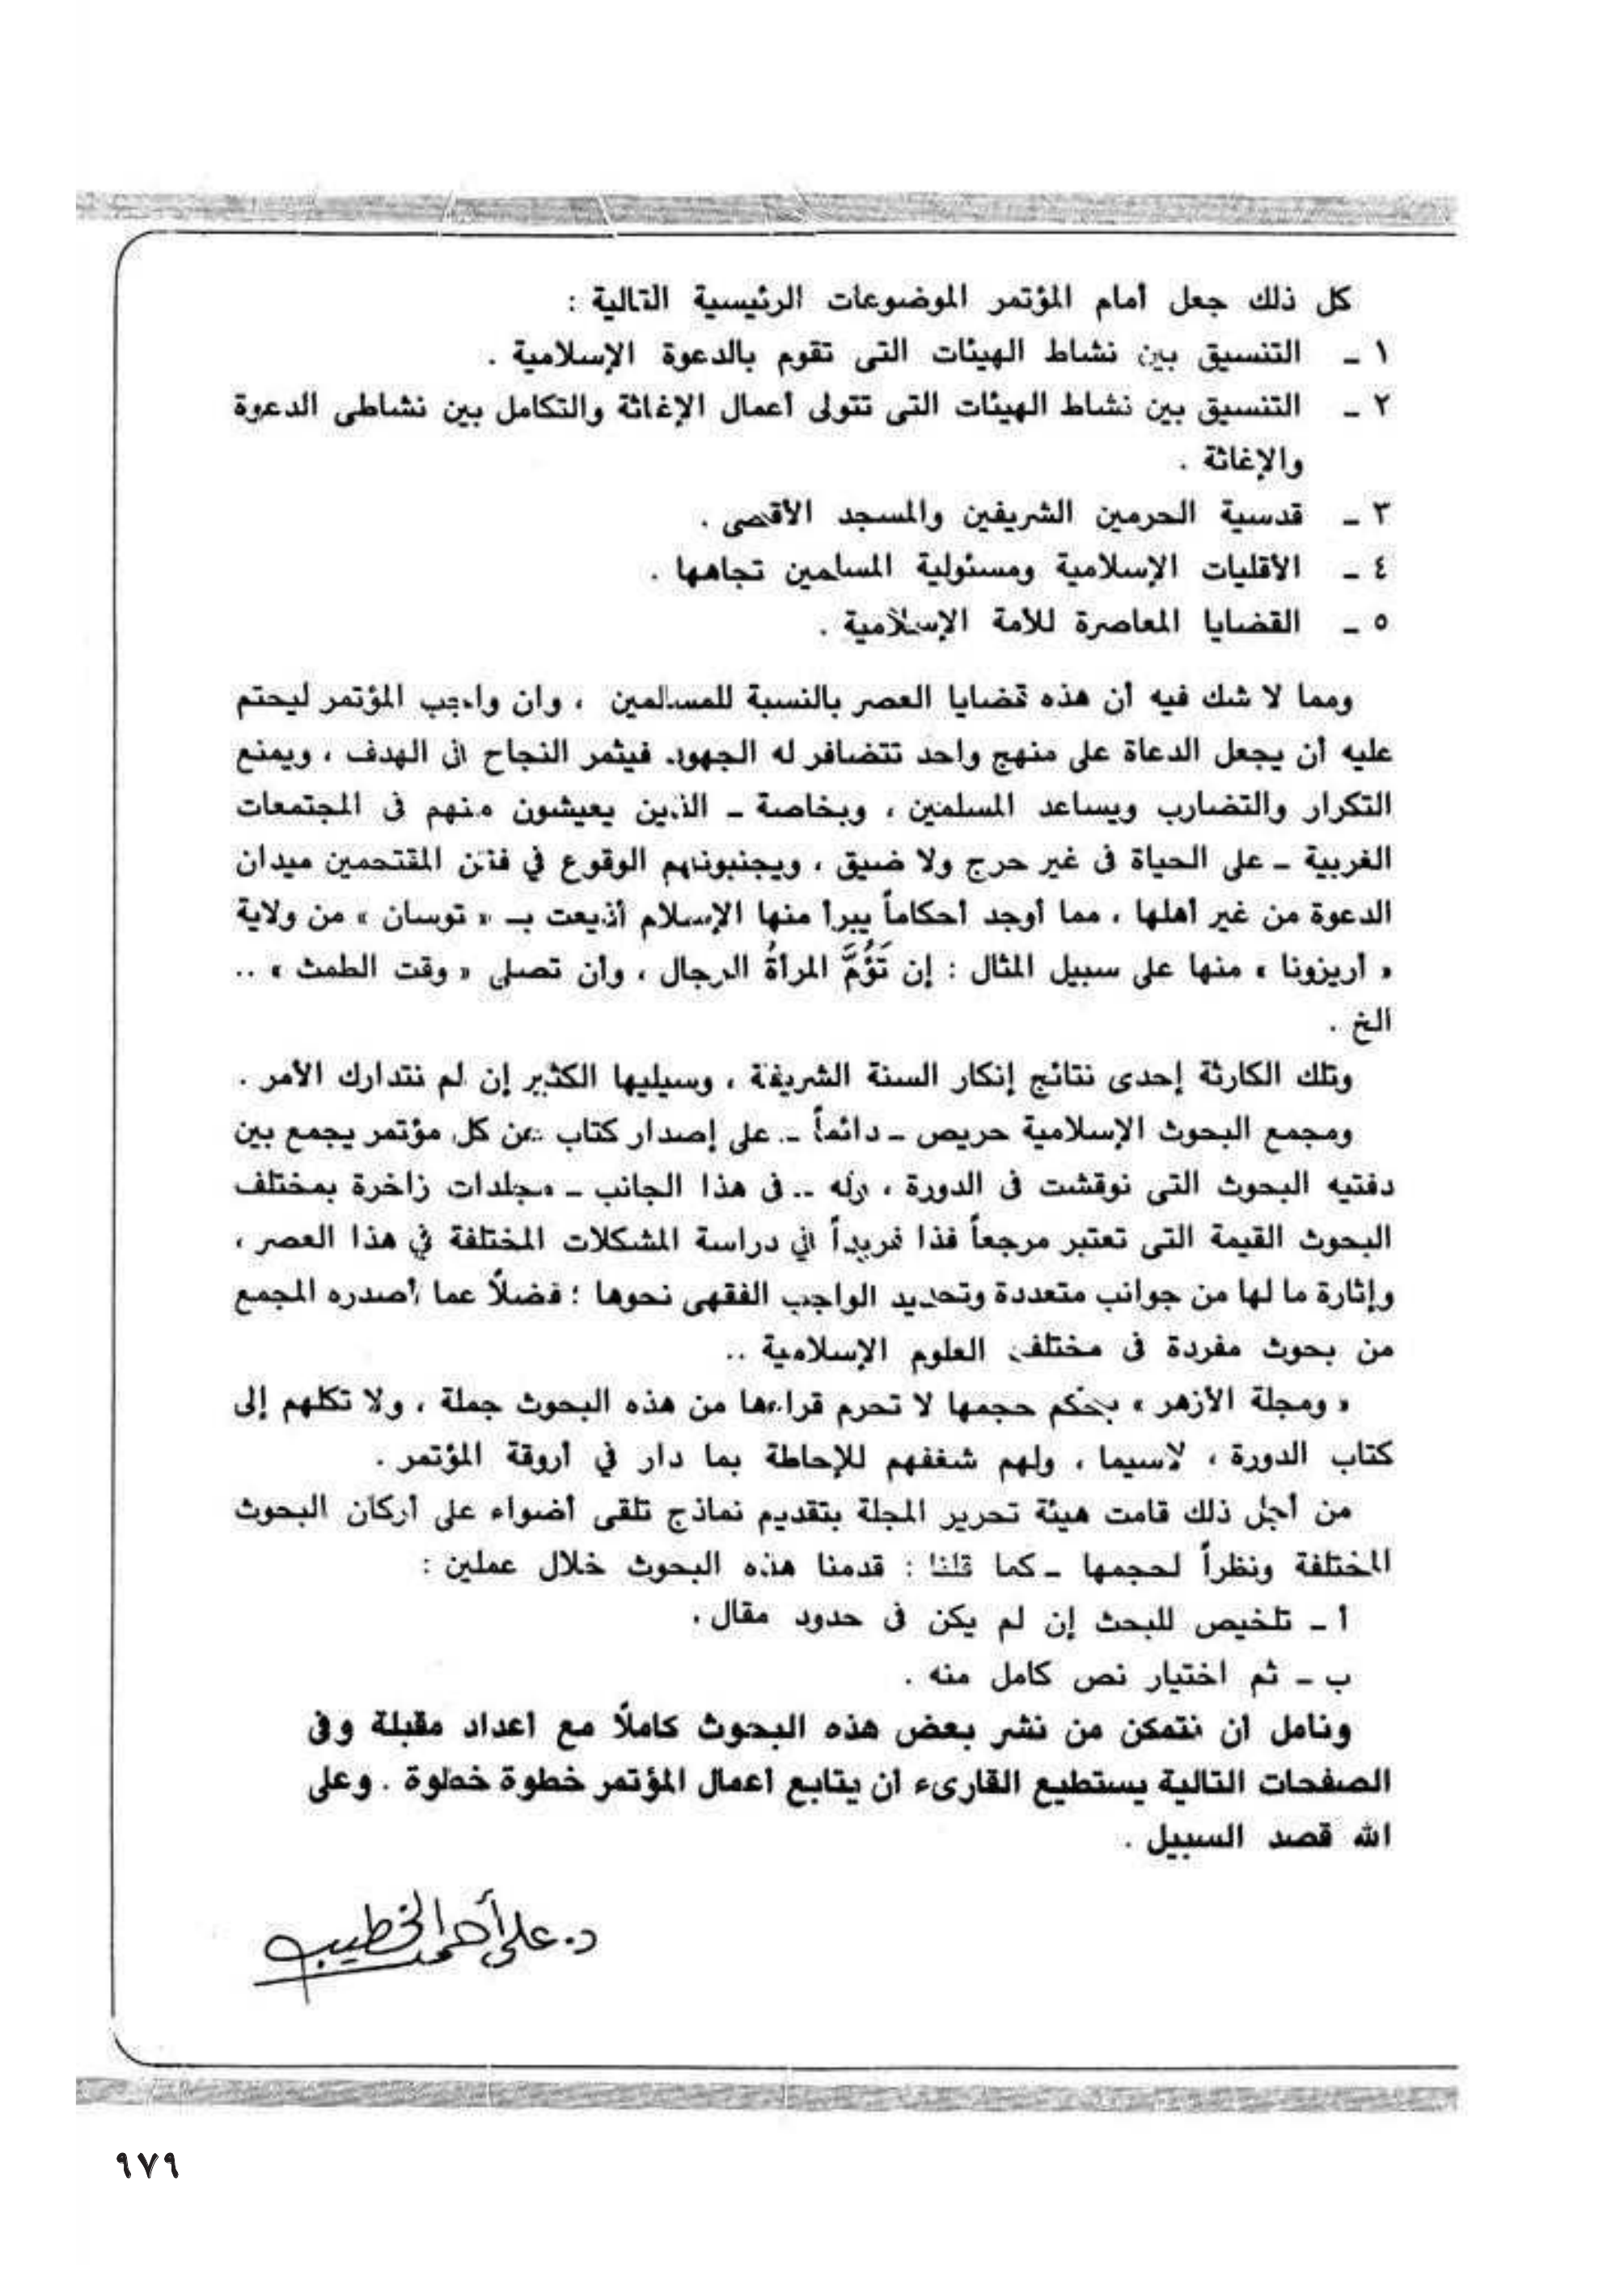 كل ذلك جعل أمام المؤتمر الموضوعات الرئيسية التالية :
١ ـ التنسيق بين نشاط الهيئات التى تقوم بالدعوة الإسلامية .
٢ ـ التنسيق بين نشاط الهيئات التى تتولى أعمال الإغاثة والتكامل بين نشاطى الدعوة
والإغاثة .
٣ ـ قدسية الحرمين الشريفين والمسجد الأقصى .
٤ ـ الأقليات الإسلامية ومسئولية المسلمين تجاهها .
٥ ـ القضايا المعاصرة للأمة الإسلامية .
ومما لا شك فيه أن هذه قضايا العصر بالنسبة للمسلمين ، وان واجب المؤتمر ليحتم
عليه أن يجعل الدعاة على منهج واحد تتضافر له الجهود. فيثمر النجاح فى الهدف ، ويمنع
التكرار والتضارب ويساعد المسلمين ، وبخاصة ـ الذين يعيشون منهم فى المجتمعات
الغربية ـ على الحياة فى غير حرج ولا ضيق ، ويجنبونهم الوقوع في فتن المقتحمين ميدان
الدعوة من غير أهلها ، مما أوجد أحكاماً يبرأ منها الإسلام أذيعت بـ « توسان » من ولاية
« أريزونا » منها على سبيل المثال : إن تَؤُمَّ المرأةُ الرجال ، وأن تصلى « وقت الطمث » ..
الخ .
وتلك الكارثة إحدى نتائج إنكار السنة الشريفة ، وسيليها الكثير إن لم نتدارك الأمر .
ومجمع البحوث الإسلامية حريص ـ دائماً ـ على إصدار كتاب عن كل مؤتمر يجمع بين
دفتيه البحوث التى نوقشت فى الدورة ، وله .. فى هذا الجانب ـ مجلدات زاخرة بمختلف
البحوث القيمة التى تعتبر مرجعاً فذا فريداً في دراسة المشكلات المختلفة في هذا العصر ،
وإثارة ما لها من جوانب متعددة وتحديد الواجب الفقهى نحوها ؛ فضلاً عما أصدره المجمع
من بحوث مفردة فى مختلف العلوم الإسلامية ..
« ومجلة الأزهر » بحكم حجمها لا تحرم قراءها من هذه البحوث جملة ، ولا تكلهم إلى
كتاب الدورة ، لاسيما ، ولهم شغفهم للإحاطة بما دار في أروقة المؤتمر .
من أجل ذلك قامت هيئة تحرير المجلة بتقديم نماذج تلقى أضواء على أركان البحوث
المختلفة ونظراً لحجمها ـ كما قلنا : قدمنا هذه البحوث خلال عملين :
أ ـ تلخيص للبحث إن لم يكن فى حدود مقال .
ب ـ ثم اختيار نص كامل منه .
ونامل ان نتمكن من نشر بعض هذه البحوث كاملاً مع اعداد مقبلة وفى
الصفحات التالية يستطيع القارىء ان يتابع اعمال المؤتمر خطوة خطوة . وعلى
الله قصد السبيل .
د. على أحمد الخطيب
٩٧٩